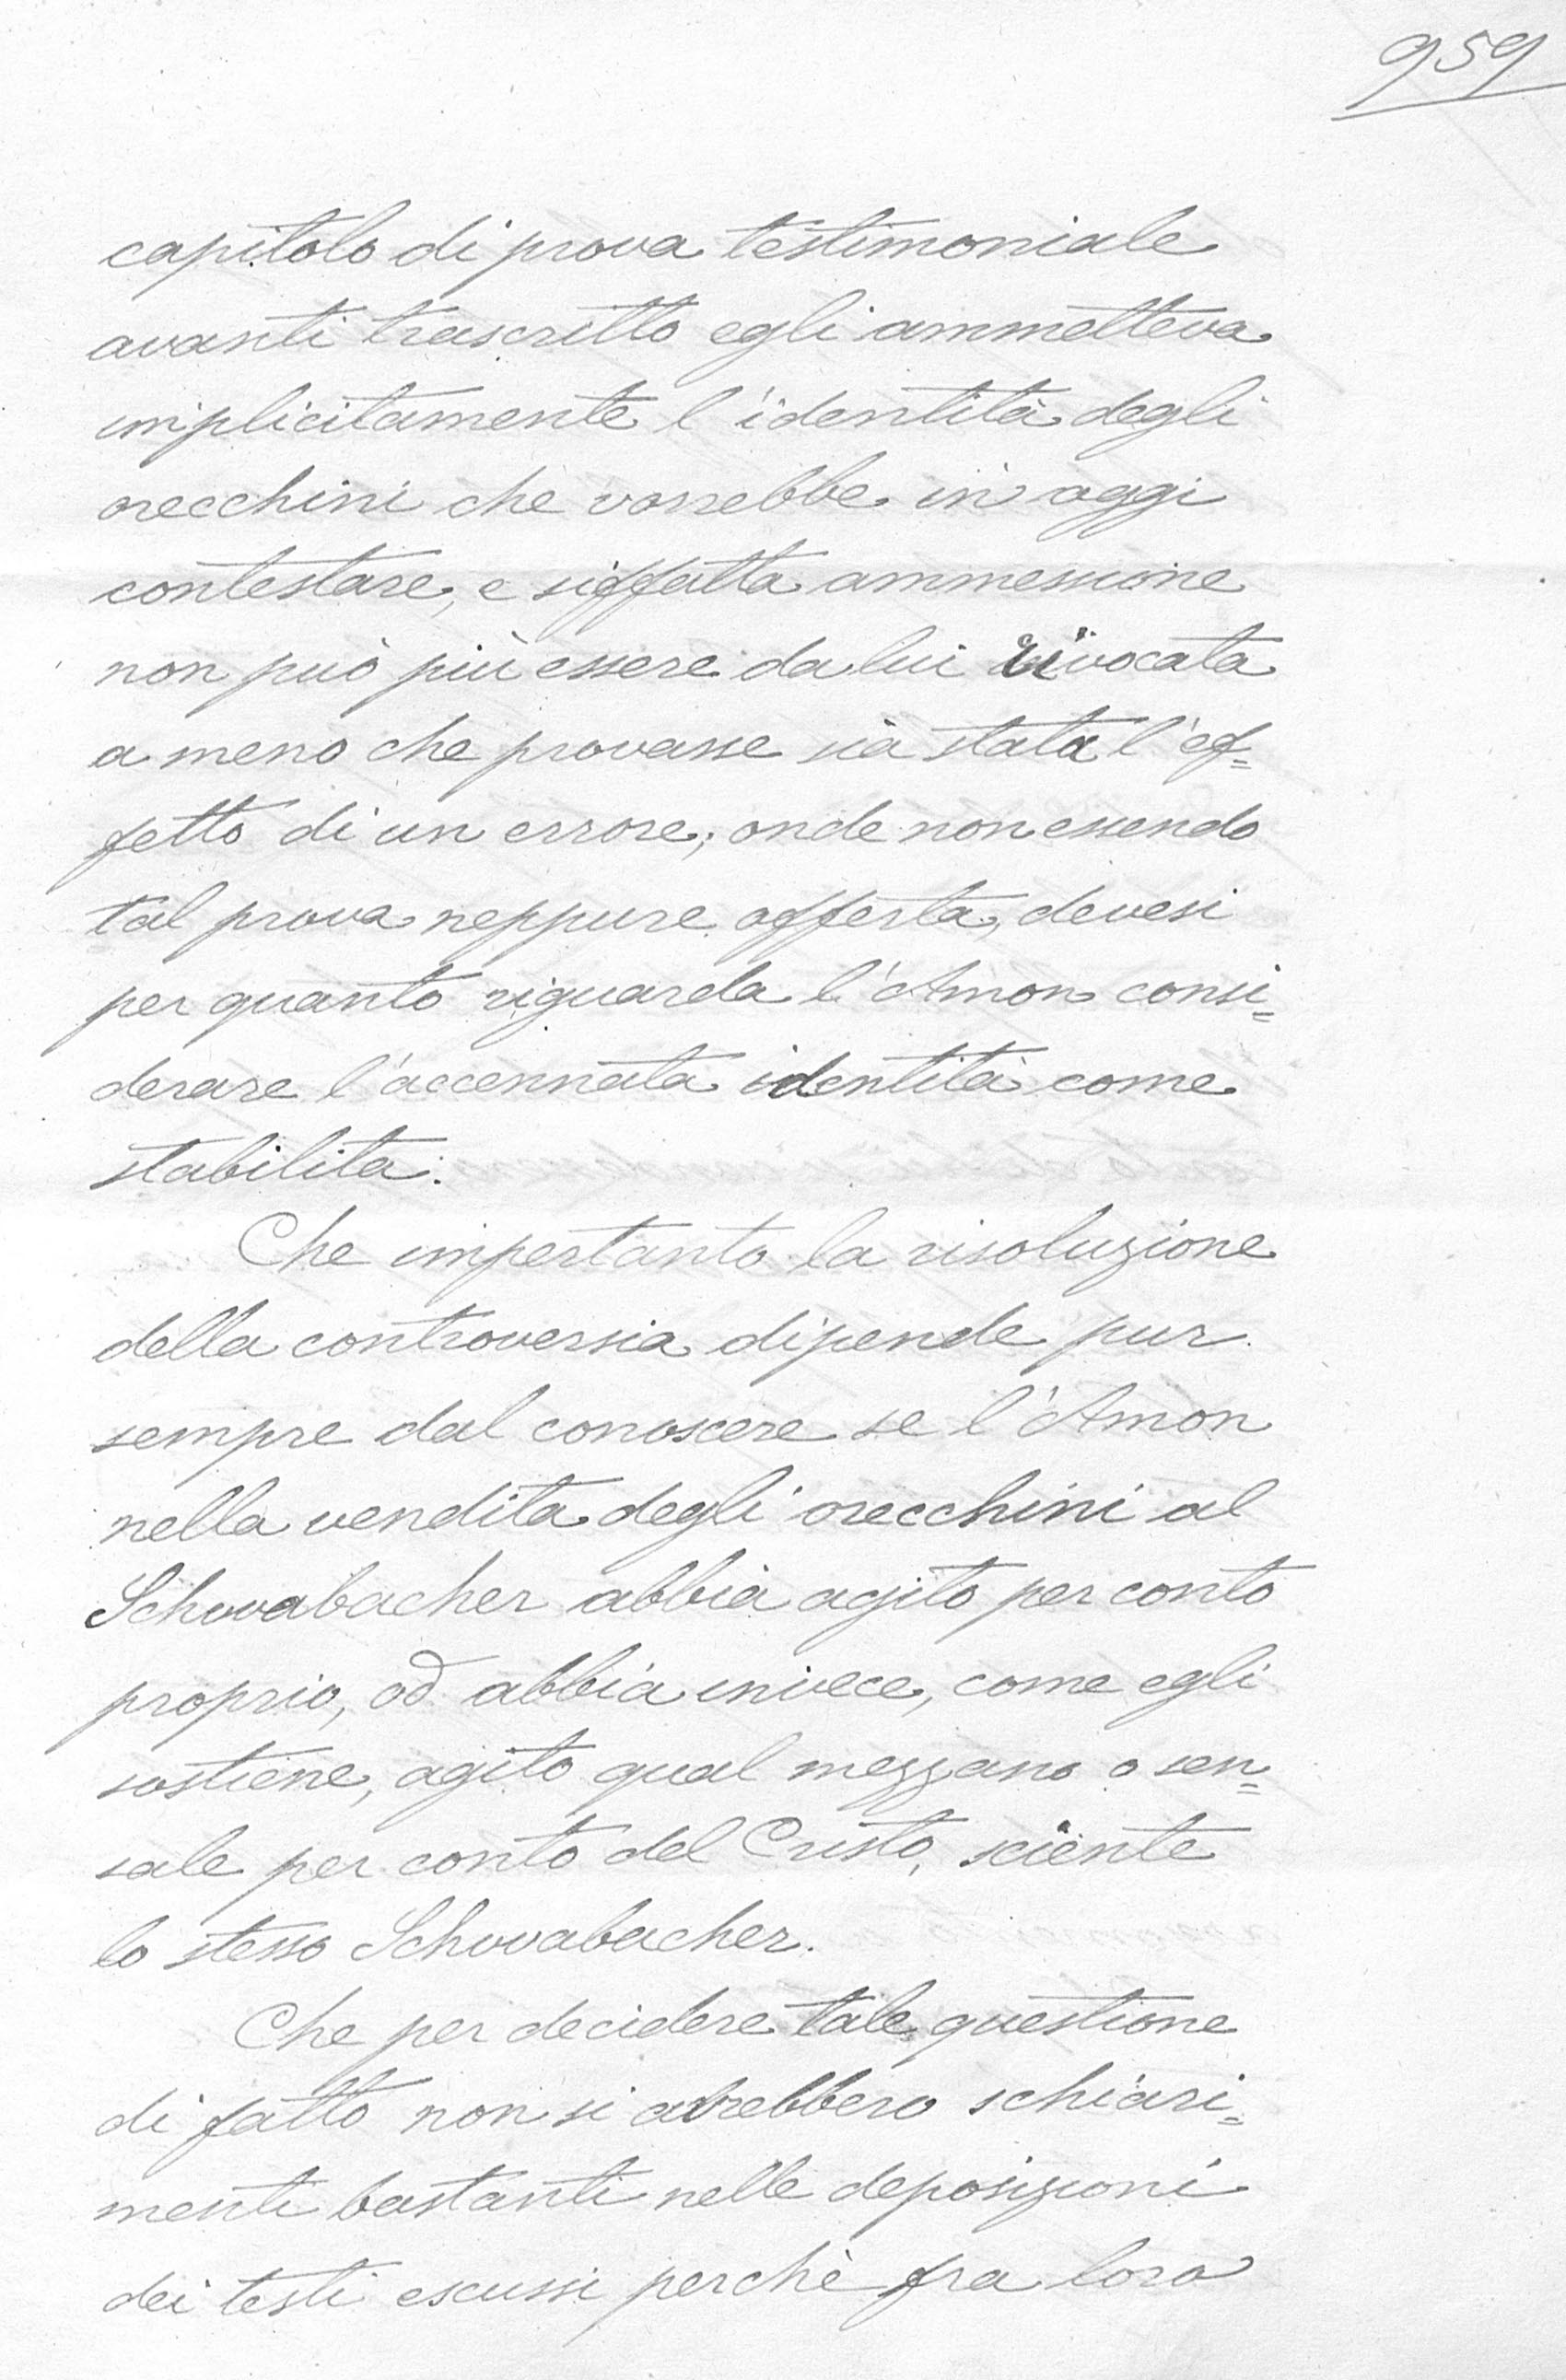 959
capitolo di prova testimoniale
avanti trascritto egli ammetteva
implicitamente l'identità degli
orecchini che vorrebbe in oggi
contestare, e siffatta ammessione
non può più essere da lui rivocata
a meno che provasse sia stata l'ef=
fetto di un errore; onde non essendo
tal prova neppure offerta, devesi
per quanto riguarda l'Amon consi=
derare l'accennata identità come
stabilita.
Che impertanto la risoluzione
della controversia dipende pur
sempre dal conoscere se l'Amon
nella vendita degli orecchini al
Schwabacher abbia agito per conto
proprio, od abbia invece, come egli
sostiene, agito qual mezzano o sen=
sale per conto del Cristo, sciente
lo stesso Schwabacher.
Che per decidere tale questione
di fatto non si avrebbero schiari=
menti bastanti nelle deposizioni
dei testi escussi perchè fra loro